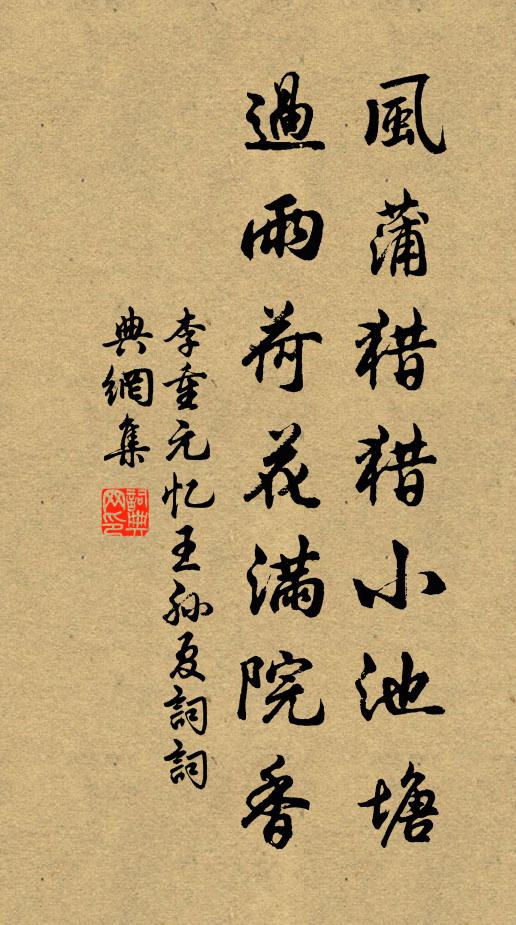 風蒲猎猎小池塘
過雨荷花满院香
李重元忆王孙夏詞詞
典網集
詞典網印